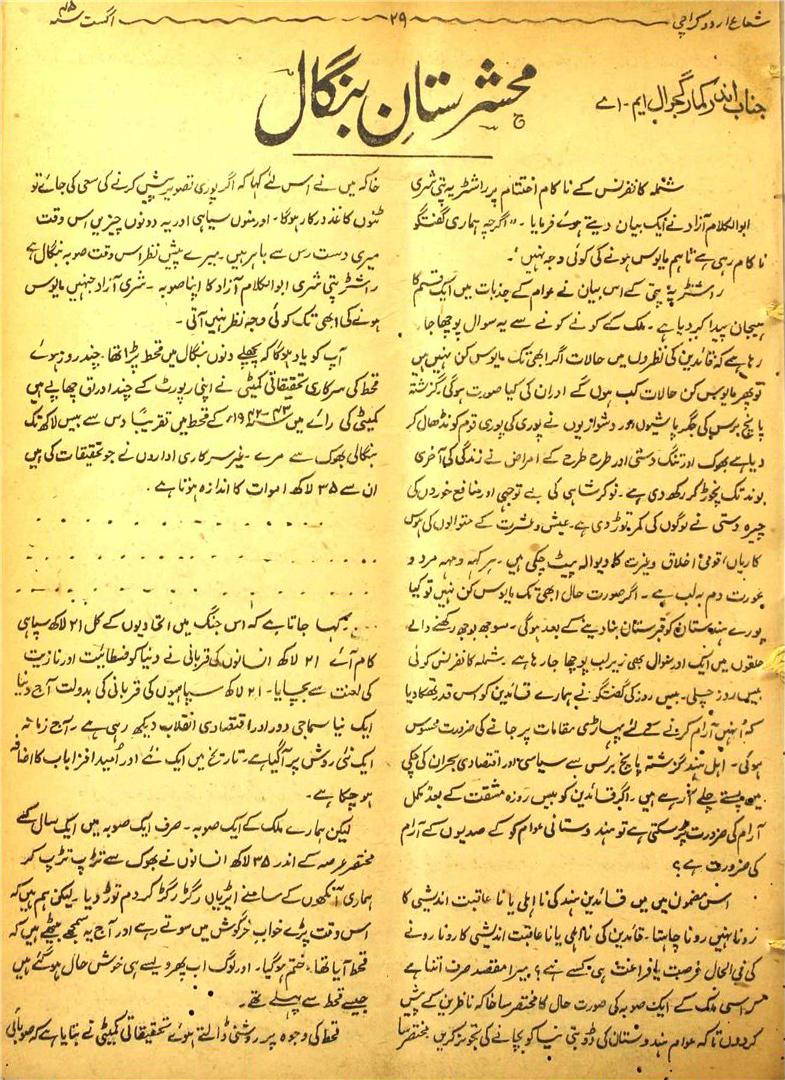 شعاع اردو کراچی
۲۹
اگست ۴۵ء
جناب اندر کمار گجرال ایم - اے
محشرستانِ بنگال
شملہ کانفرنس کے ناکام اختتام پر راشٹریہ پتی شری
ابوالکلام آزاد نے ایک بیان دیتے ہوئے فرمایا - "اگرچہ ہماری گفتگو
ناکام رہی ہے تاہم مایوس ہونے کی کوئی وجہ نہیں"۔
راشٹریہ پتی کے اس بیان نے عوام کے جذبات میں ایک قسم کا
ہیجان پیدا کر دیا ہے - ملک کے کونے کونے سے یہ سوال پوچھا جا
رہا ہے کہ قائدین کی نظروں میں حالات اگر ابھی تک مایوس کن نہیں ہیں
تو پھر مایوس کن حالات کب ہوں گے اور ان کی کیا صورت ہوگی، گزشتہ
پانچ برس کی جگر پاشیوں اور دشواریوں نے پوری کی پوری قوم کو نڈھال کر
دیا ہے بھوک اور تنگ دستی اور طرح طرح کے امراض نے زندگی کی آخری
بوند تک نچوڑ کر رکھ دی ہے - نوکر شاہی کی بے توجہی اور منافع خوروں کی
چیرہ دستی نے لوگوں کی کمر توڑ دی ہے - عیش و عشرت کے متوالوں کی ہوس
کاریاں، قومی اخلاق وغیرت کا دیوالہ پیٹ چکی ہیں - ہر کہہ ومہہ مرد و
عورت دم بہ لب ہے - اگر صورت حال ابھی تک مایوس کن نہیں تو کیا
پورے ہندستان کو قبرستان بنا دینے کے بعد ہوگی - سوجھ بوجھ رکھنے والے
حلقوں میں ایک اور سوال بھی زیر لب پوچھا جا رہا ہے - شملہ کانفرنس کوئی
بیس روز چلی - بیس روز کی گفتگو نے ہمارے قائدین کو اس قدر تھکا دیا
کہ انہیں آرام کرنے کے لئے پہاڑی مقامات پر جانے کی ضرورت محسوس
ہوگی - اہل ہند گزشتہ پانچ برس سے سیاسی اور اقتصادی بحران کی چکی
میں پستے چلے آ رہے ہیں - اگر قائدین کو بیس روزہ مشقت کے بعد مکمل
آرام کی ضرورت پڑ سکتی ہے تو ہندوستانی عوام کو کے صدیوں کے آرام
کی ضرورت ہے؟
اس مضمون میں میں قائدین ہند کی نا اہلی یا نا عاقبت اندیشی کا
رونا نہیں رونا چاہتا - قائدین کی نا اہلی یا نا عاقبت اندیشی کا رونا رونے
کی فی الحال فرصت یا فراغت ہی کسے ہے؟ میرا مقصد صرف اتنا ہے
کہ اسی ملک کے ایک صوبہ کی صورت حال کا مختصر سا خاکہ ناظرین کے پیش
کر دوں تاکہ عوام ہندوستان کی ڈوبتی نیا کو بچانے کی تجویز کریں مختصر سا
خاکہ میں نے اس لئے کہا کہ اگر پوری تصویر پیش کرنے کی سعی کی جائے تو
ٹنوں کاغذ درکار ہوگا - اور منوں سیاہی اور یہ دونوں چیزیں اس وقت
میری دست رس سے باہر ہیں - میرے پیش نظر اس وقت صوبہ بنگال ہے
راشٹر پتی شری ابوالکلام آزاد کا اپنا صوبہ - شری آزاد جنہیں مایوس
ہونے کی ابھی تک کوئی وجہ نظر نہیں آتی -
آپ کو یاد ہوگا کہ پچھلے دنوں بنگال میں قحط پڑا تھا - چند روز ہوئے
قحط کی سرکاری تحقیقاتی کمیٹی نے اپنی رپورٹ کے چند اوراق چھاپے ہیں
کمیٹی کی رائے میں ۴۳-۱۹۴۲ء کے قحط میں تقریباً دس سے بیس لاکھ تک
بنگالی بھوک سے مرے - غیر سرکاری اداروں نے جو تحقیقات کی ہیں
ان سے ۳۵ لاکھ اموات کا اندازہ ہوتا ہے -
. . . . . . . . . .
. . . . . . . . . . . .
. . . . . . . . . . . .
. . . یہ کہا جاتا ہے کہ اس جنگ میں اتحادیوں کے کل ۲۱ لاکھ سپاہی
کام آئے ۲۱ لاکھ انسانوں کی قربانی نے دنیا کو فسطائیت اور نازیت
کی لعنت سے بچایا - ۲۱ لاکھ سپاہیوں کی قربانی کی بدولت آج دنیا
ایک نیا سماجی دور اور اقتصادی انقلاب دیکھ رہی ہے - آج زمانہ
ایک نئی روش پر آ گیا ہے - تاریخ میں ایک نئے اور امید افزا باب کا اضافہ
ہو چکا ہے -
لیکن ہمارے ملک کے ایک صوبہ - صرف ایک صوبہ میں ایک سال کے
مختصر عرصہ کے اندر ۳۵ لاکھ انسانوں نے بھوک سے تڑپ تڑپ کر
ہماری آنکھوں کے سامنے ایڑیاں رگڑ رگڑ کر دم توڑ دیا - لیکن ہم ہیں کہ
اس وقت پڑے خواب خرگوش میں سوتے رہے اور آج یہ سمجھ بیٹھے ہیں کہ
قحط آیا تھا، ختم ہو گیا - اور لوگ اب پھر ویسے ہی خوش حال ہو گئے ہیں
جیسے قحط سے پہلے تھے -
قحط کی وجوہ پر روشنی ڈالتے ہوئے تحقیقاتی کمیٹی نے بتایا ہے کہ صوبائی